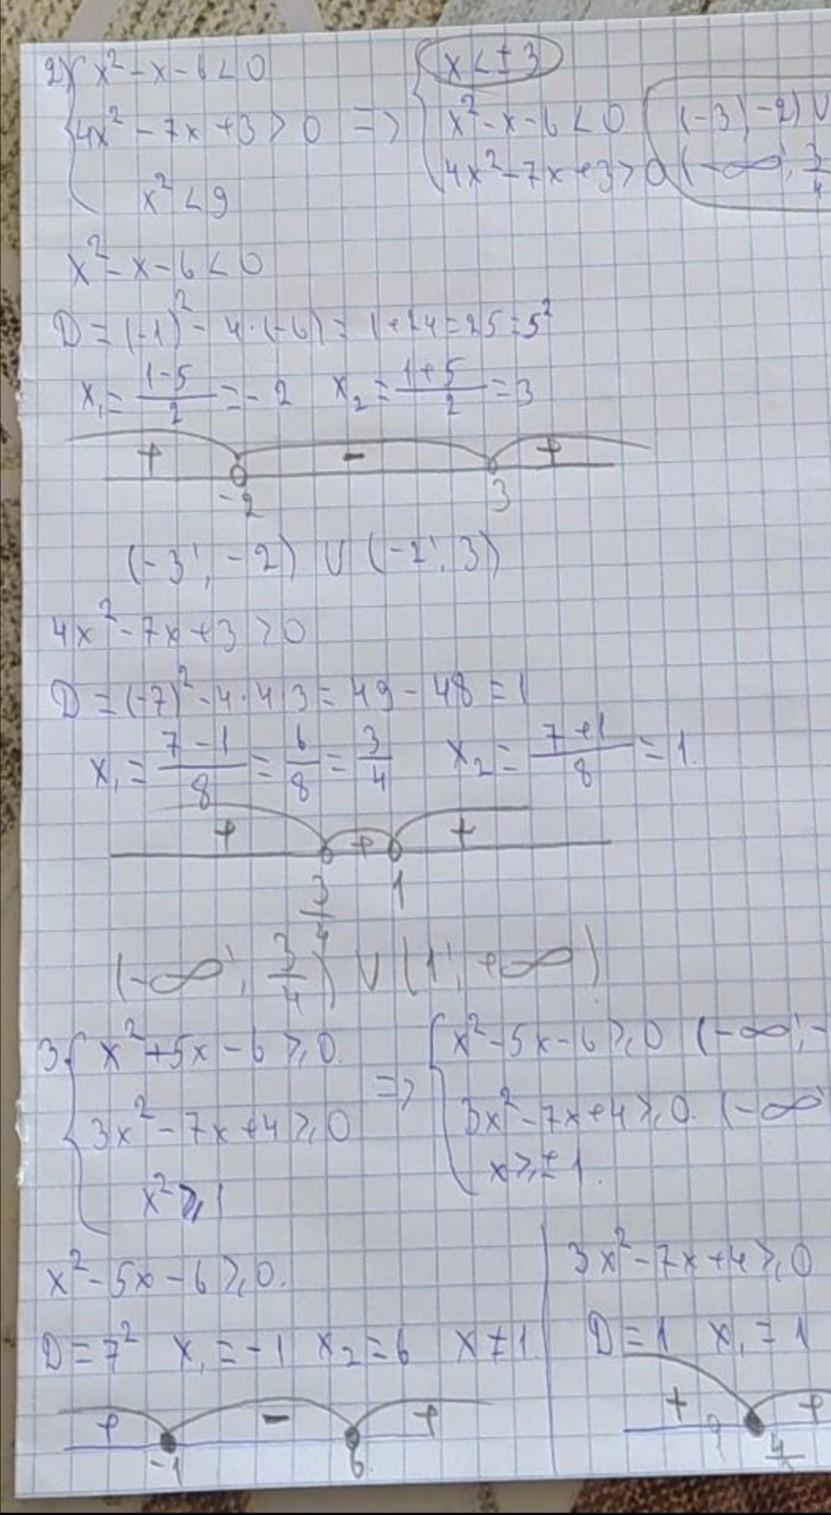 2) { x² - x - 6 < 0
4x² - 7x + 3 > 0 =>
x² < 9
{ x < ± 3
x² - x - 6 < 0 (-3; -2) ∪
4x² - 7x + 3 > 0 (-∞; 3/4
x² - x - 6 < 0
D = (-1)² - 4·(-6) = 1+24 = 25 = 5²
x₁ = (1-5)/2 = -2 x₂ = (1+5)/2 = 3
+ - +
-2 3
(-3; -2) ∪ (-2; 3)
4x² - 7x + 3 > 0
D = (-7)² - 4·4·3 = 49 - 48 = 1
x₁ = (7-1)/8 = 6/8 = 3/4 x₂ = (7+1)/8 = 1.
+ + +
3/4 1
(-∞; 3/4) ∪ (1; +∞)
3. { x² + 5x - 6 ⩾ 0.
3x² - 7x + 4 ⩾ 0 =>
x² ⩾ 1
{ x² - 5x - 6 ⩾ 0 (-∞; -
3x² - 7x + 4 ⩾ 0. (-∞
x ⩾ ± 1.
x² - 5x - 6 ⩾ 0.
D = 7² x₁ = -1 x₂ = 6 x ≠ 1
+ - +
-1 6
3x² - 7x + 4 ⩾ 0
D = 1 x₁ = 1
+ +